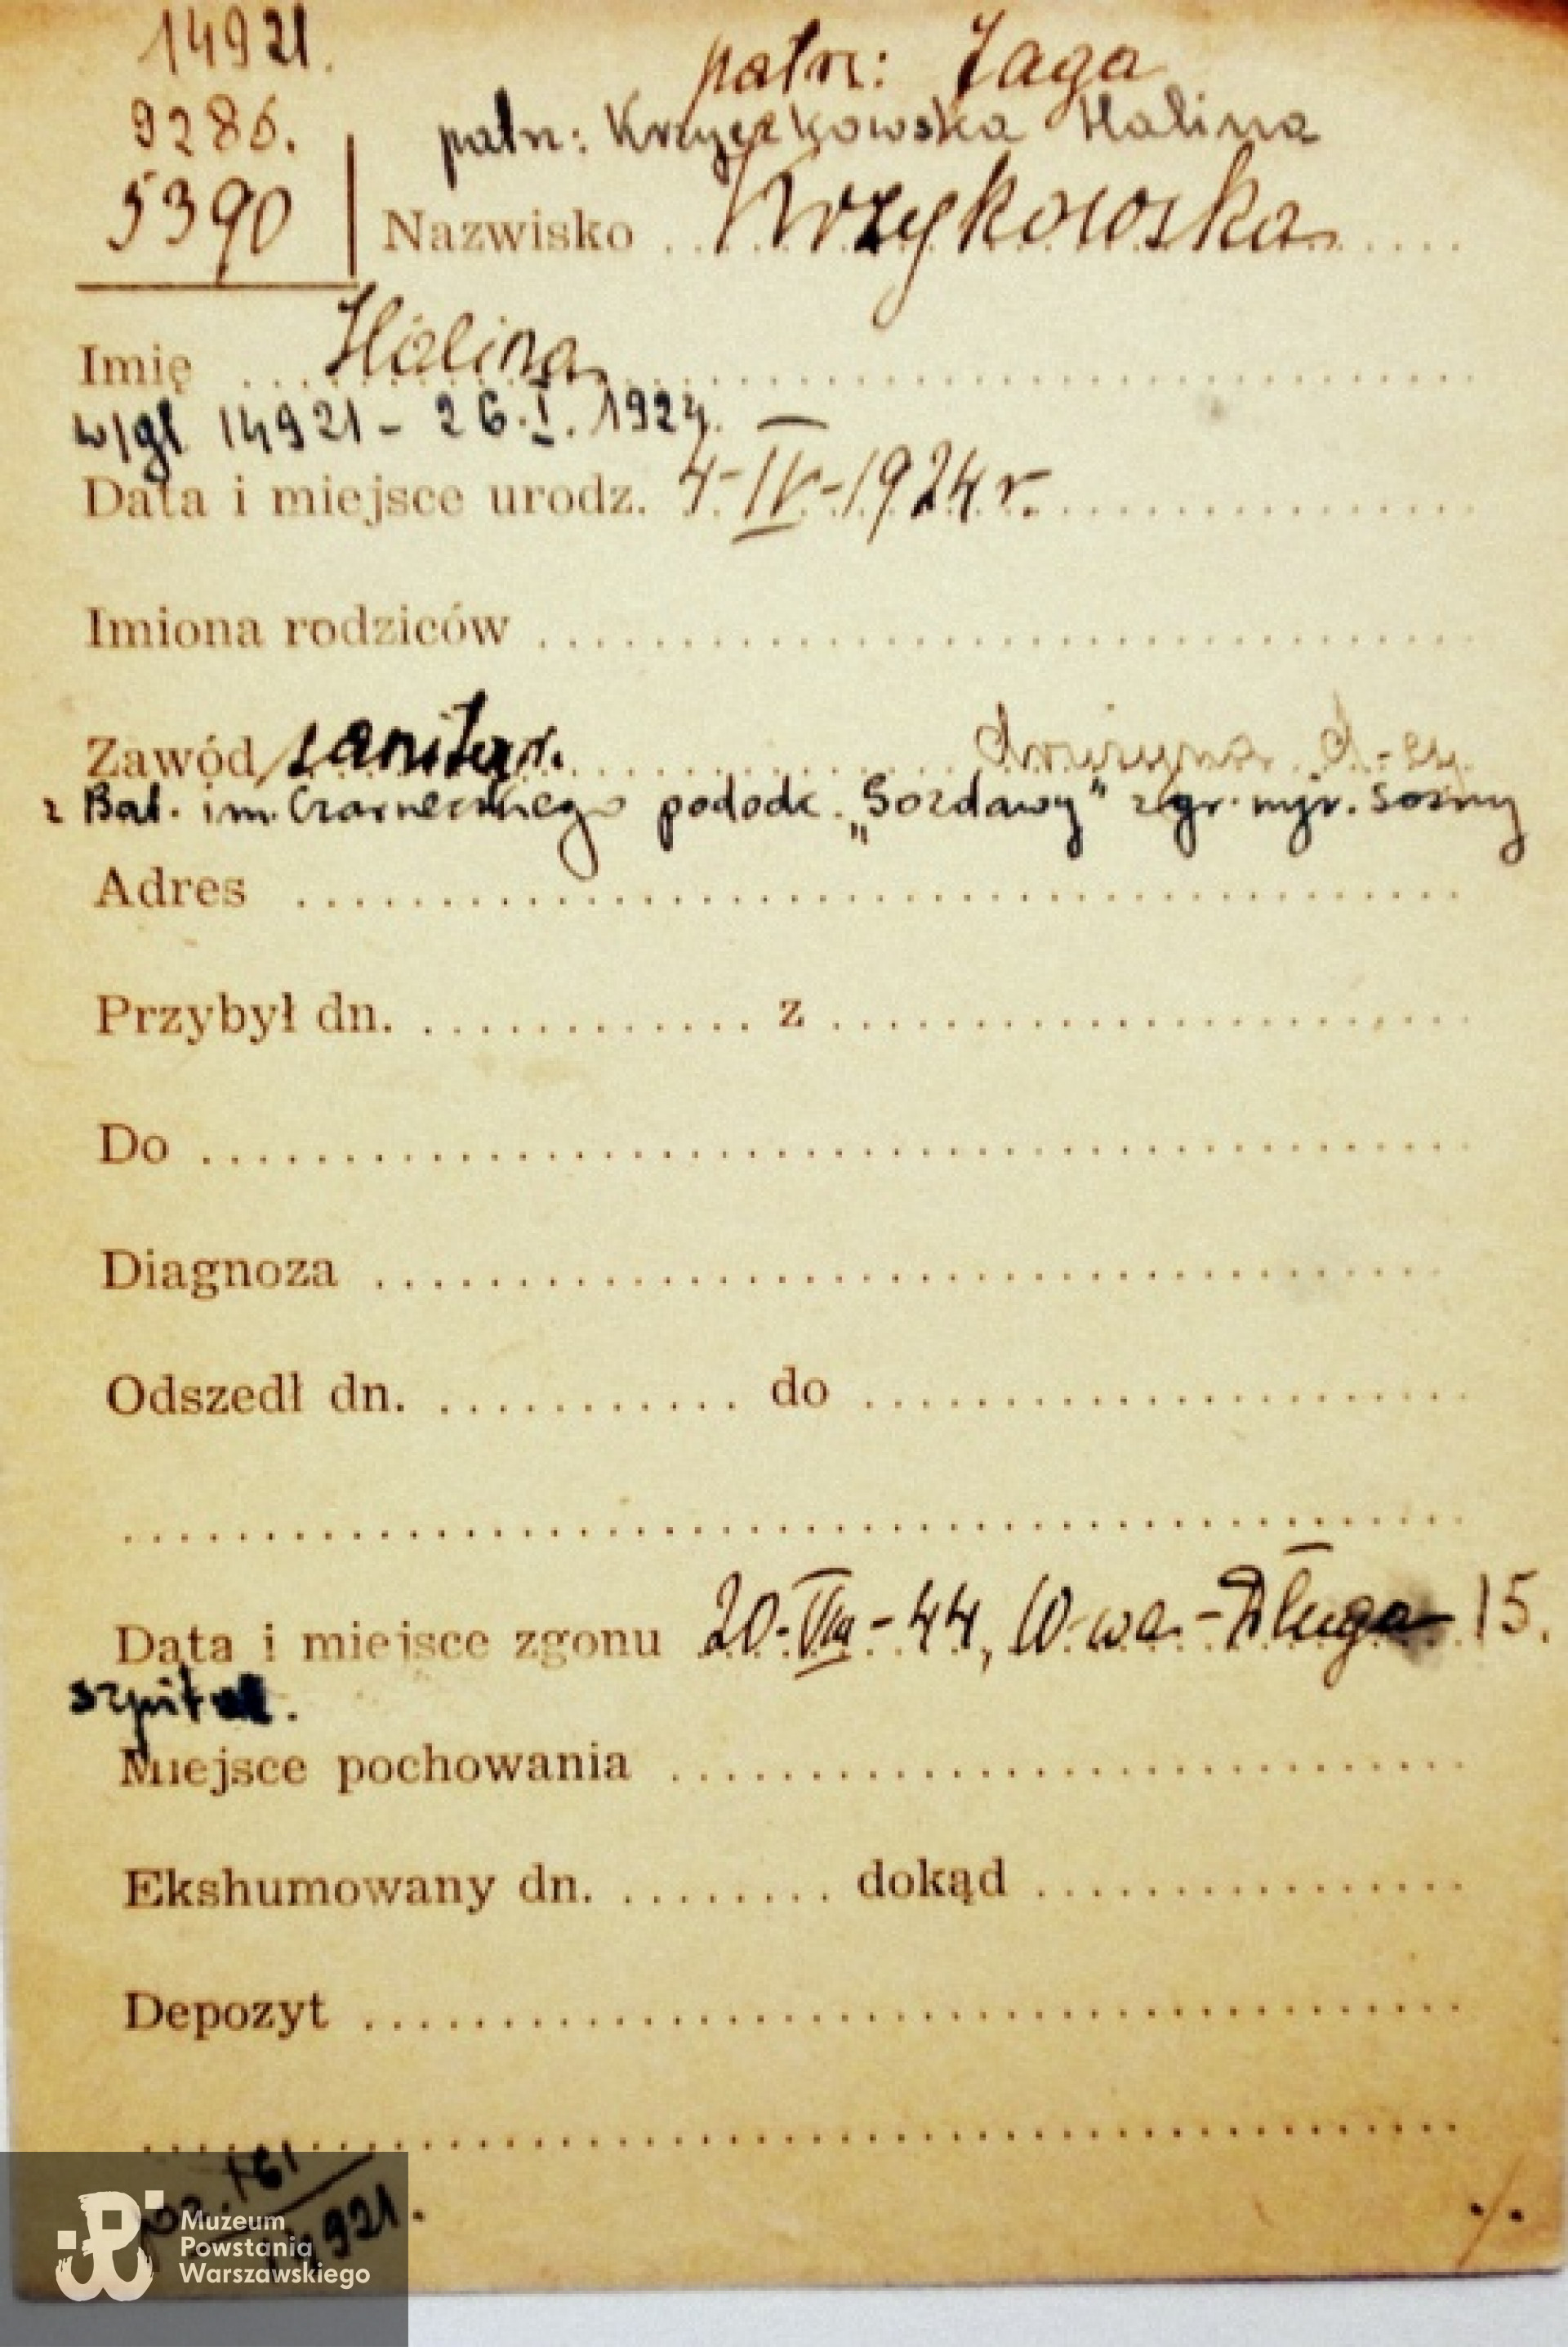 14921.
patrz: Jaga
9286.
patrz: Krzyczkowska Halina
5390
Nazwisko Krzykowska
Imię Halina
w/gł 14921 - 26.I.1924.
Data i miejsce urodz. 4-IV-1924 r.
Imiona rodziców
Zawód sanitar. drużyna
z Bat. im. Czarneckiego pododc. „Gozdawy" zgr. mjr. Sosny
Adres
Przybył dn. z
Do
Diagnoza
Odszedł dn. do
Data i miejsce zgonu 20-VIII-44, W-wa-Długa 15.
szpital.
Miejsce pochowania
Ekshumowany dn. dokąd
Depozyt
poz. 161
14921.
Muzeum
Powstania
Warszawskiego